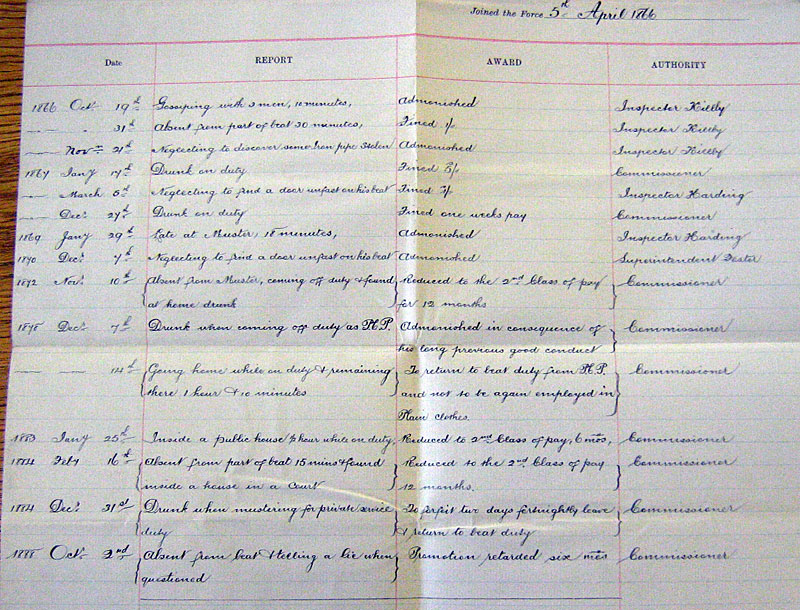 Joined the Force 5th April 1866
Date REPORT AWARD AUTHORITY
1866 Octr 19th Gossiping with 3 men, 10 minutes, Admonished Inspector Kilby
— " 31st Absent from part of beat 30 minutes, Fined 1/- Inspector Kilby
— Novr 21st Neglecting to discover some Iron pipe Stolen Admonished Inspector Kilby
1867 Jany 17th Drunk on duty Fined 5/- Commissioner
— March 5th Neglecting to find a door unfast on his beat Fined Inspector Harding
— Decr 27th Drunk on duty Fined one weeks pay Commissioner
1869 Jany 29th Late at Muster, 18 minutes, Admonished Inspector Harding
1870 Decr 7th Neglecting to find a door unfast on his beat Admonished Superintendent Foster
1872 Novr 10th Absent from Muster, coming off duty & found Reduced to the 2nd Class of pay Commissioner
at home drunk for 12 months
1878 Decr 7th Drunk when coming off duty as P.P. Admonished in consequence of Commissioner
his long previous good conduct
— — 14th Going home while on duty & remaining To return to beat duty from P.P. Commissioner
there 1 hour & 10 minutes and not to be again employed in
Plain clothes.
1883 Jany 25th Inside a public house ½ hour while on duty, Reduced to 2nd Class of pay, 6 mos, Commissioner
1884 Feby 16th Absent from part of beat 15 mins & found Reduced to the 2nd Class of pay Commissioner
inside a house in a Court 12 months.
1884 Decr 31st Drunk when mustering for private service To forfeit two days fortnightly leave Commissioner
duty & return to beat duty
1888 Octr 2nd Absent from beat & telling a lie when Promotion retarded six mos Commissioner
questioned